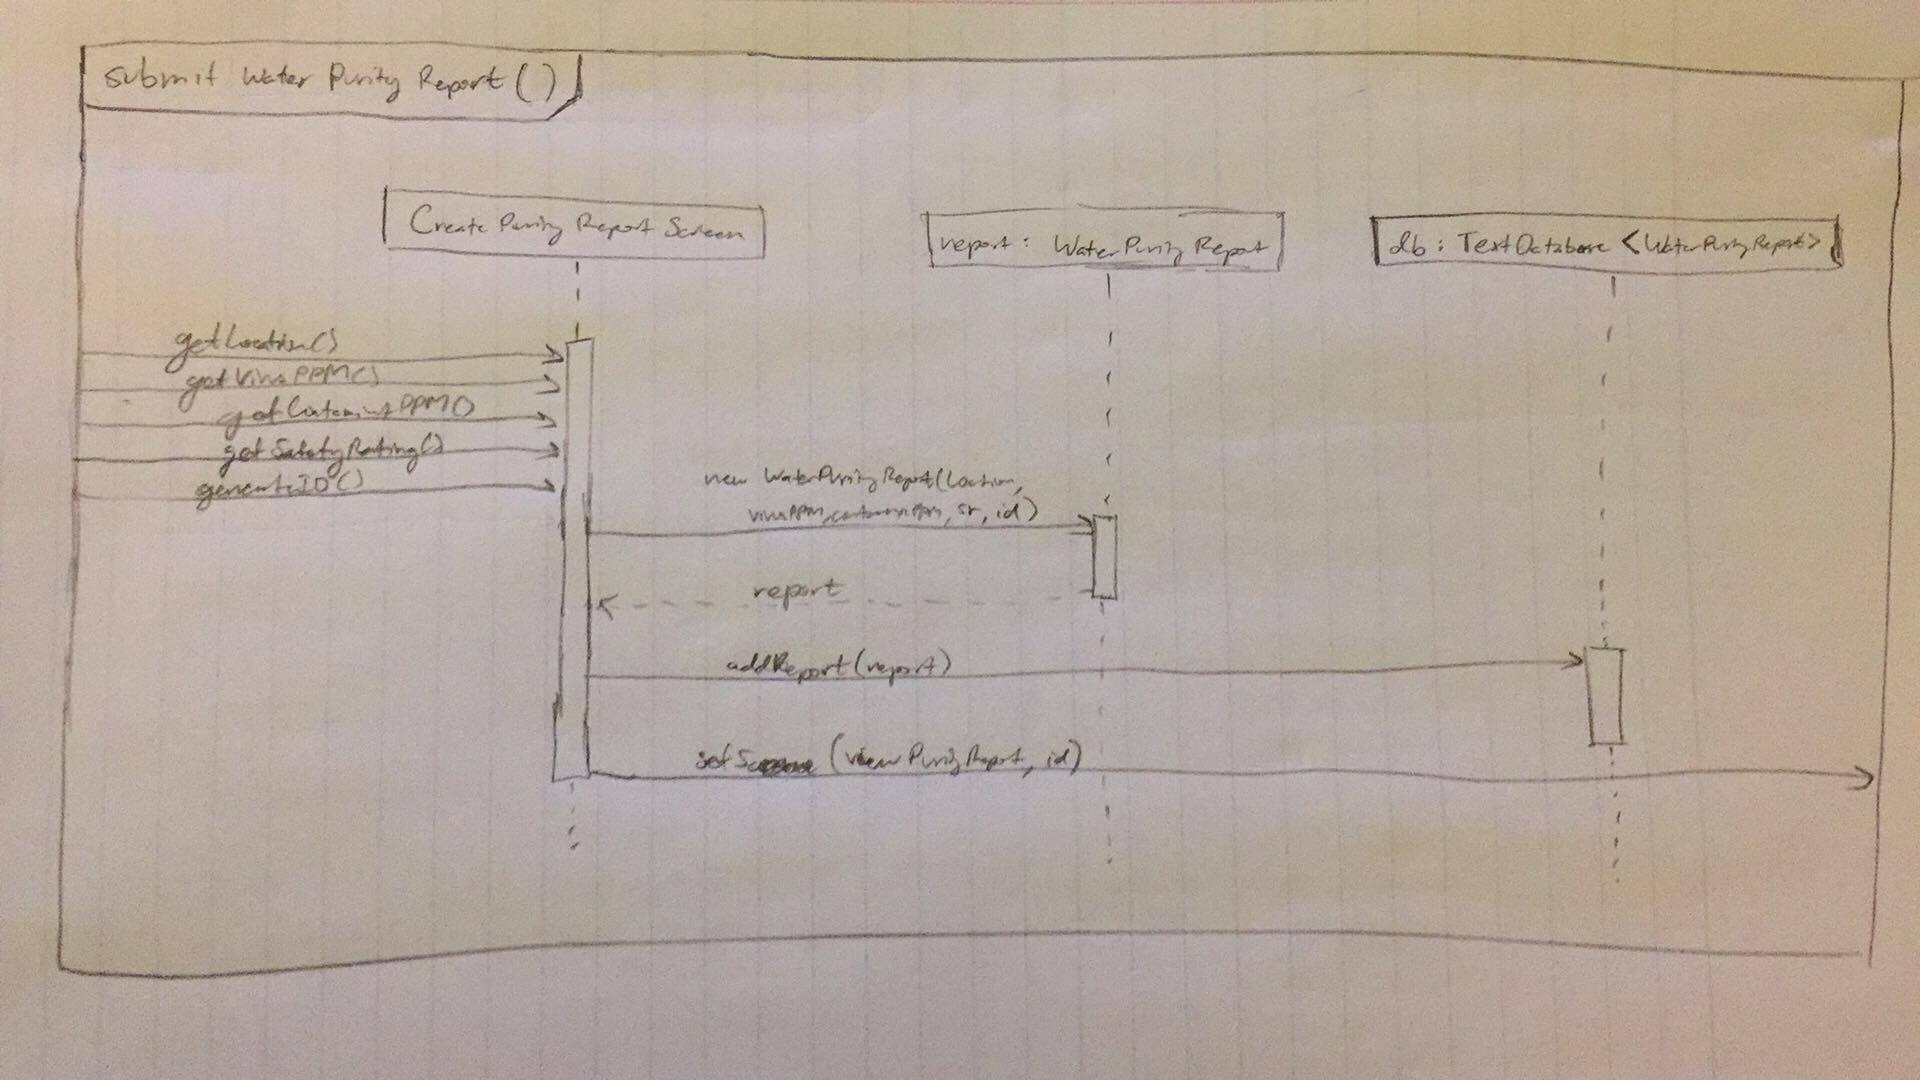 submit Water Purity Report()
Create Purity Report Screen
report: WaterPurity Report
db: TextDatabase <WaterPurityReport>
getLocation()
getVirusPPM()
getContaminantPPM()
getSafetyRating()
generateID()
new WaterPurityReport(location,
virusPPM, contaminantPPM, sr, id)
report
addReport(report)
(viewPurityReport, id)